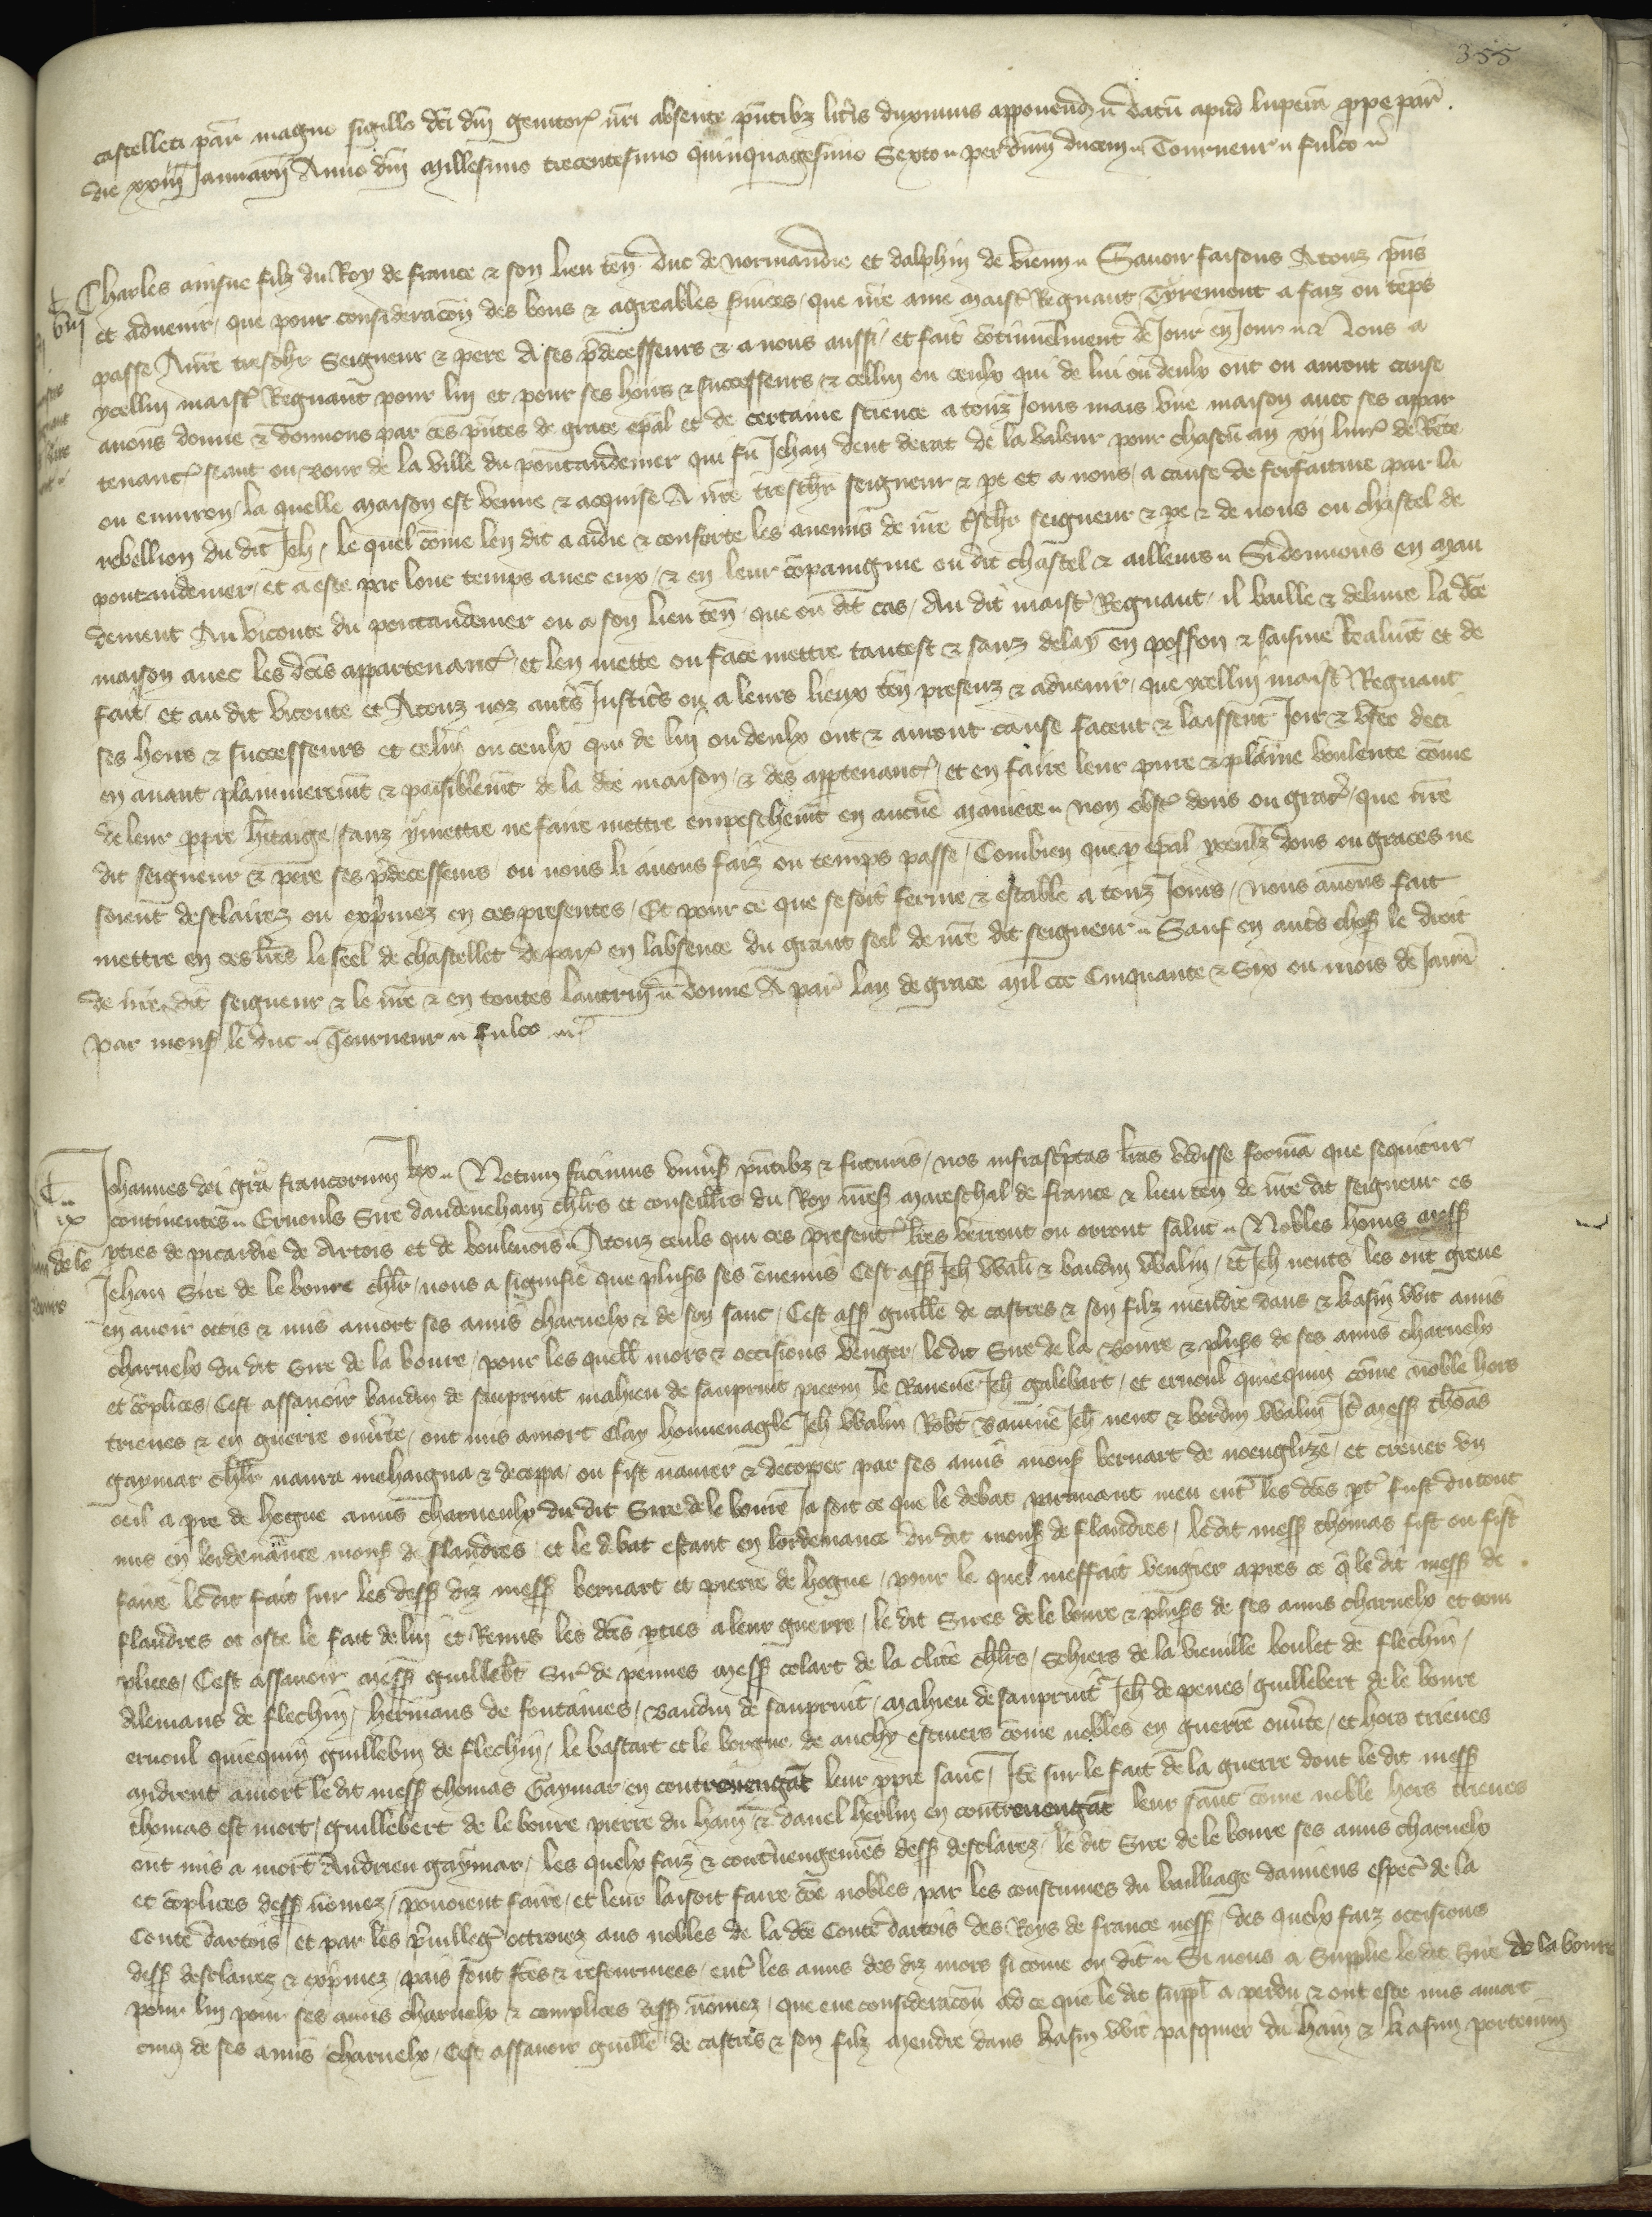 355
castelleti par̄ magno sigillo dc̄i dn̄i genitor̄ nr̄i absente pn̄tibz litt̄is duximus apponend datū apud luperā prope par̄
die xxiiij Januarij Anno dn̄i millesimo trecentesimo quinquagesimo Sexto per dn̄m ducem Tourneur fulco
Charles ainsne filz du Roy de france & son lieu ten̄ duc de normandie et dalphin de vienn̄ Sauoir faisons Atouz pn̄s
viij
et aduenir / que pour consideracōn des bons & agreables s̄uices / que nr̄e ame maist̄ Regnaut Tyremont a faiz ou tēps
passe A nr̄e treschr̄ Seigneur & pere A ses p̄decesseurs & a nous aussi / et fait cōtinuelment de Jour en Jour & Nous a
ycellui maist̄ Regnaut pour lui et pour ses hoirs & successeurs & cellui ou ceulx qui de lui ou deulx ont ou auront cause
auons donne & donnons par ces pn̄tes de grace esp̄al et de certaine science a touz Jours mais vne maison auec ses apar
tenanc̄ seant ou bour de la ville du pontaudemer qui fu Jehan dent derat de la valeur pour chascū an xij liur̄ de Rēte
ou enuiron / la quelle maison est venue & acquise A nr̄e treschr̄ seigneur & pe et a nous / a cause de forfaiture par la
rebellion du dit Jeh̄ / le quel cōme len dit a aidie & conforte les anemis de nr̄e t̄schr̄ seigneur & pe & de nous ou chastel de
pontaudemer / et a este par lonc temps auec eux / & en leur cōpaingnie ou dit chastel & ailleurs Si donnons en man
dement Au viconte du pontaudemer ou a son lieu ten̄ / que ou dit cas / Au dit maist̄ Regnaut / il baille & deliure la dc̄e
maison auec les dc̄es appartenanc̄ / et len mette ou face mettre tantost & sanz delay en posson & saisine Realmt̄ et de
fait / et au dit viconte et Atouz noz aut̄s Justic̄s ou a leurs lieux ten̄ presenz & aduenir / que ycellui maist̄ Regnaut
ses hoirs & successeurs et celui ou ceulx qui de lui ou deulx ont & auront cause facent & laissent Joir & vser deci
en auant plainneremt̄ & paisiblemt̄ de la dc̄e maison / & des apptenanc̄ / et en faire leur pure & plaine voulente cōme
de leur ppre h̄itaige / sanz y mettre ne faire mettre empeschemt̄ en aucūe maniere non obst̄ dons ou grac̄ / que nr̄e
dit seigneur & pere ses p̄decesseurs ou nous li auons faiz ou temps passe / Combien que p esp̄al yceulz dons ou graces ne
soient desclairez ou exp̄mez en ces presentes / Et pour ce que se soit ferme & estable a touz Jours / nous auons fait
mettre en ces lr̄es le seel de chastellet de par̄ en labsence du grant seel de nr̄e dit seigneur Sauf en aut̄s chos̄ le droit
de nr̄e dit seigneur & le nr̄e & en toutes lautruy donne A par̄ lan de grace mil ccc Cinquante & Six ou mois de Janu
par mons̄ le duc Tourneur fulco
Johannes dei gr̄a francorum Rex Notum facimus vniu̅s̄ pn̄tibz & futuris / nos infrasc̄ptas lr̄as vidisse formā que sequitur
ix
continentes Ernouls Sire daudeneham chlr̄s et conseill̄rs du Roy nr̄es̄ mareschal de france & lieu ten̄ de nr̄e dit seigneur es
pties de picardie de Artois et de boulenois Atouz ceuls qui ces present̄ lr̄es verront ou orront salut Nobles homs mess̄
Jehan Sire de le boure chlr̄ / nous a signifie que plus̄s ses ēnemis Cest ass̄ Jeh̄ wali & baudin walin / & Jeh̄ nents les ont greue
en auoir occis & mis amort ses amis charnelx & de son sanc / Cest ass̄ guille de castres & son filz mendre dans & kasin wit amis
charnelx du dit Sire de la boure / pour les quelx mors & occisions venger / le dit Sire de la boure & plus̄s de ses amis charnelx
et cōplices / Cest assauoir baudin de sanprint mahieu de sanprint pierin le Raneue Jeh̄ galebart / et ernoul quiequin cōme noble hors
trieues & en guerre ouūte / ont mis amort clay honnenagle Jeh̄ walin Robt̄ Bamue Jeh̄ nent & bordin walin It̄ mess̄ thōas
gaymar chlr̄ naura mehaigna & decoppa / ou fist naurer & decoper par ses amis mons̄ bernart de noenglize / et creuer vn
oeil a pre de hogue amis charneulx du dit Sire de le boure Ja soit ce que le debat parauant meu ent̄ les dc̄es pt̄ fust du tout
mis en lordenāce mons̄ de flandres et le debat estant en lordenance du dit mons̄ de flandres / le dit mess̄ thomas fist ou fist
faire le dit fait sur les dess̄ diz mess̄ bernart et pierre de hogue / pour le quel meffait vengier apres ce q̄ le dit mess̄ de
flandres ot oste le fait de lui et Remis les dc̄es pties a leur guerre / le dit Sires de le boure & plus̄s de ses amis charnelx et com
plices / Cest assauoir mess̄ guillebt̄ Sir̄ de pennes mess̄ colart de la clite chlr̄s / Sohiers de la vieuille boulet de flechin /
Alemans de flechin / hermans de fontaines / baudin de sanprint / mahieu de sanprint Jeh̄ de penes / guillebert de le boure
ernoul quiequin guillebin de flechin / le bastart et le borgne de auchy escuiers cōme nobles en guerre ouūte / et hors trieues
mdrent amort le dit mess̄ thomas Gaymar en contreuengāt leur ppre sanc / Itē sur le fait de la guerre dont le dit mess̄
thomas est mort / guillebert de le boure pierre du ham & danel herlin en contreuengāt leur sanc cōme noble hors trieues
ont mis a mort Andrieu gaymar / les quelx faiz & cont̄uengemēs dess̄ desclarez / le dit Sire de le boure ses amis charnelx
et cōplices dess̄ nōmez / pouoient faire / et leur laisoit faire cōe nobles par les coustumes du bailliage damiens espec̄ de la
Conte dartois et par les p̄uilleḡ ottroiez aus nobles de la dc̄e Conte dartois des Roys de france noss̄ / des quelx faiz occisions
dess̄ desclarez & exp̄mez / pais sont fc̄es & refourmees / ent̄ les amis des diz mors si cōme on dit Si nous a Supplie le dit Sire de la boure
pour lui pour ses amis charnelx & complices dess̄ nōmez / que eue consideracōn ad ce que le dit suppl̄ a perdu & ont este mis amort
cinq de ses amis charnelx / Cest assauoir guille de castres & son filz mendre dans kasin wit pasquier du ham & kasim portenim